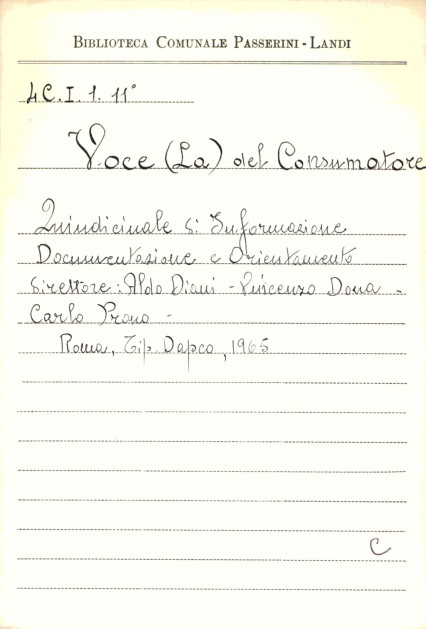 BIBLIOTECA COMUNALE PASSERINI - LANDI
4C.I.1.11°
Voce (La) del Consumatore
Quindicinale di Informazione
Documentazione e Orientamento
Direttore: Aldo Diani - Vincenzo Dona -
Carlo Prono -
Roma, Tip. Dapco, 1965
C